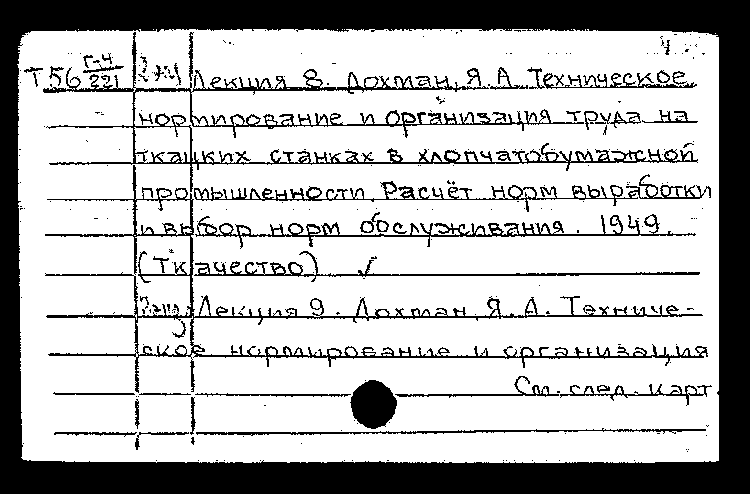 4
Т56 Г-4/221 2 экз Лекция 8. Дохман, Я.А. Техническое
нормирование и организация труда на
ткацких станках в хлопчатобумажной
промышленности. Расчёт норм выработки
и выбор норм обслуживания. 1949.
(Ткачество) ✓
Лекция 9. Дохман, Я.А. Техниче-
ское нормирование и организация
См. след. карт.